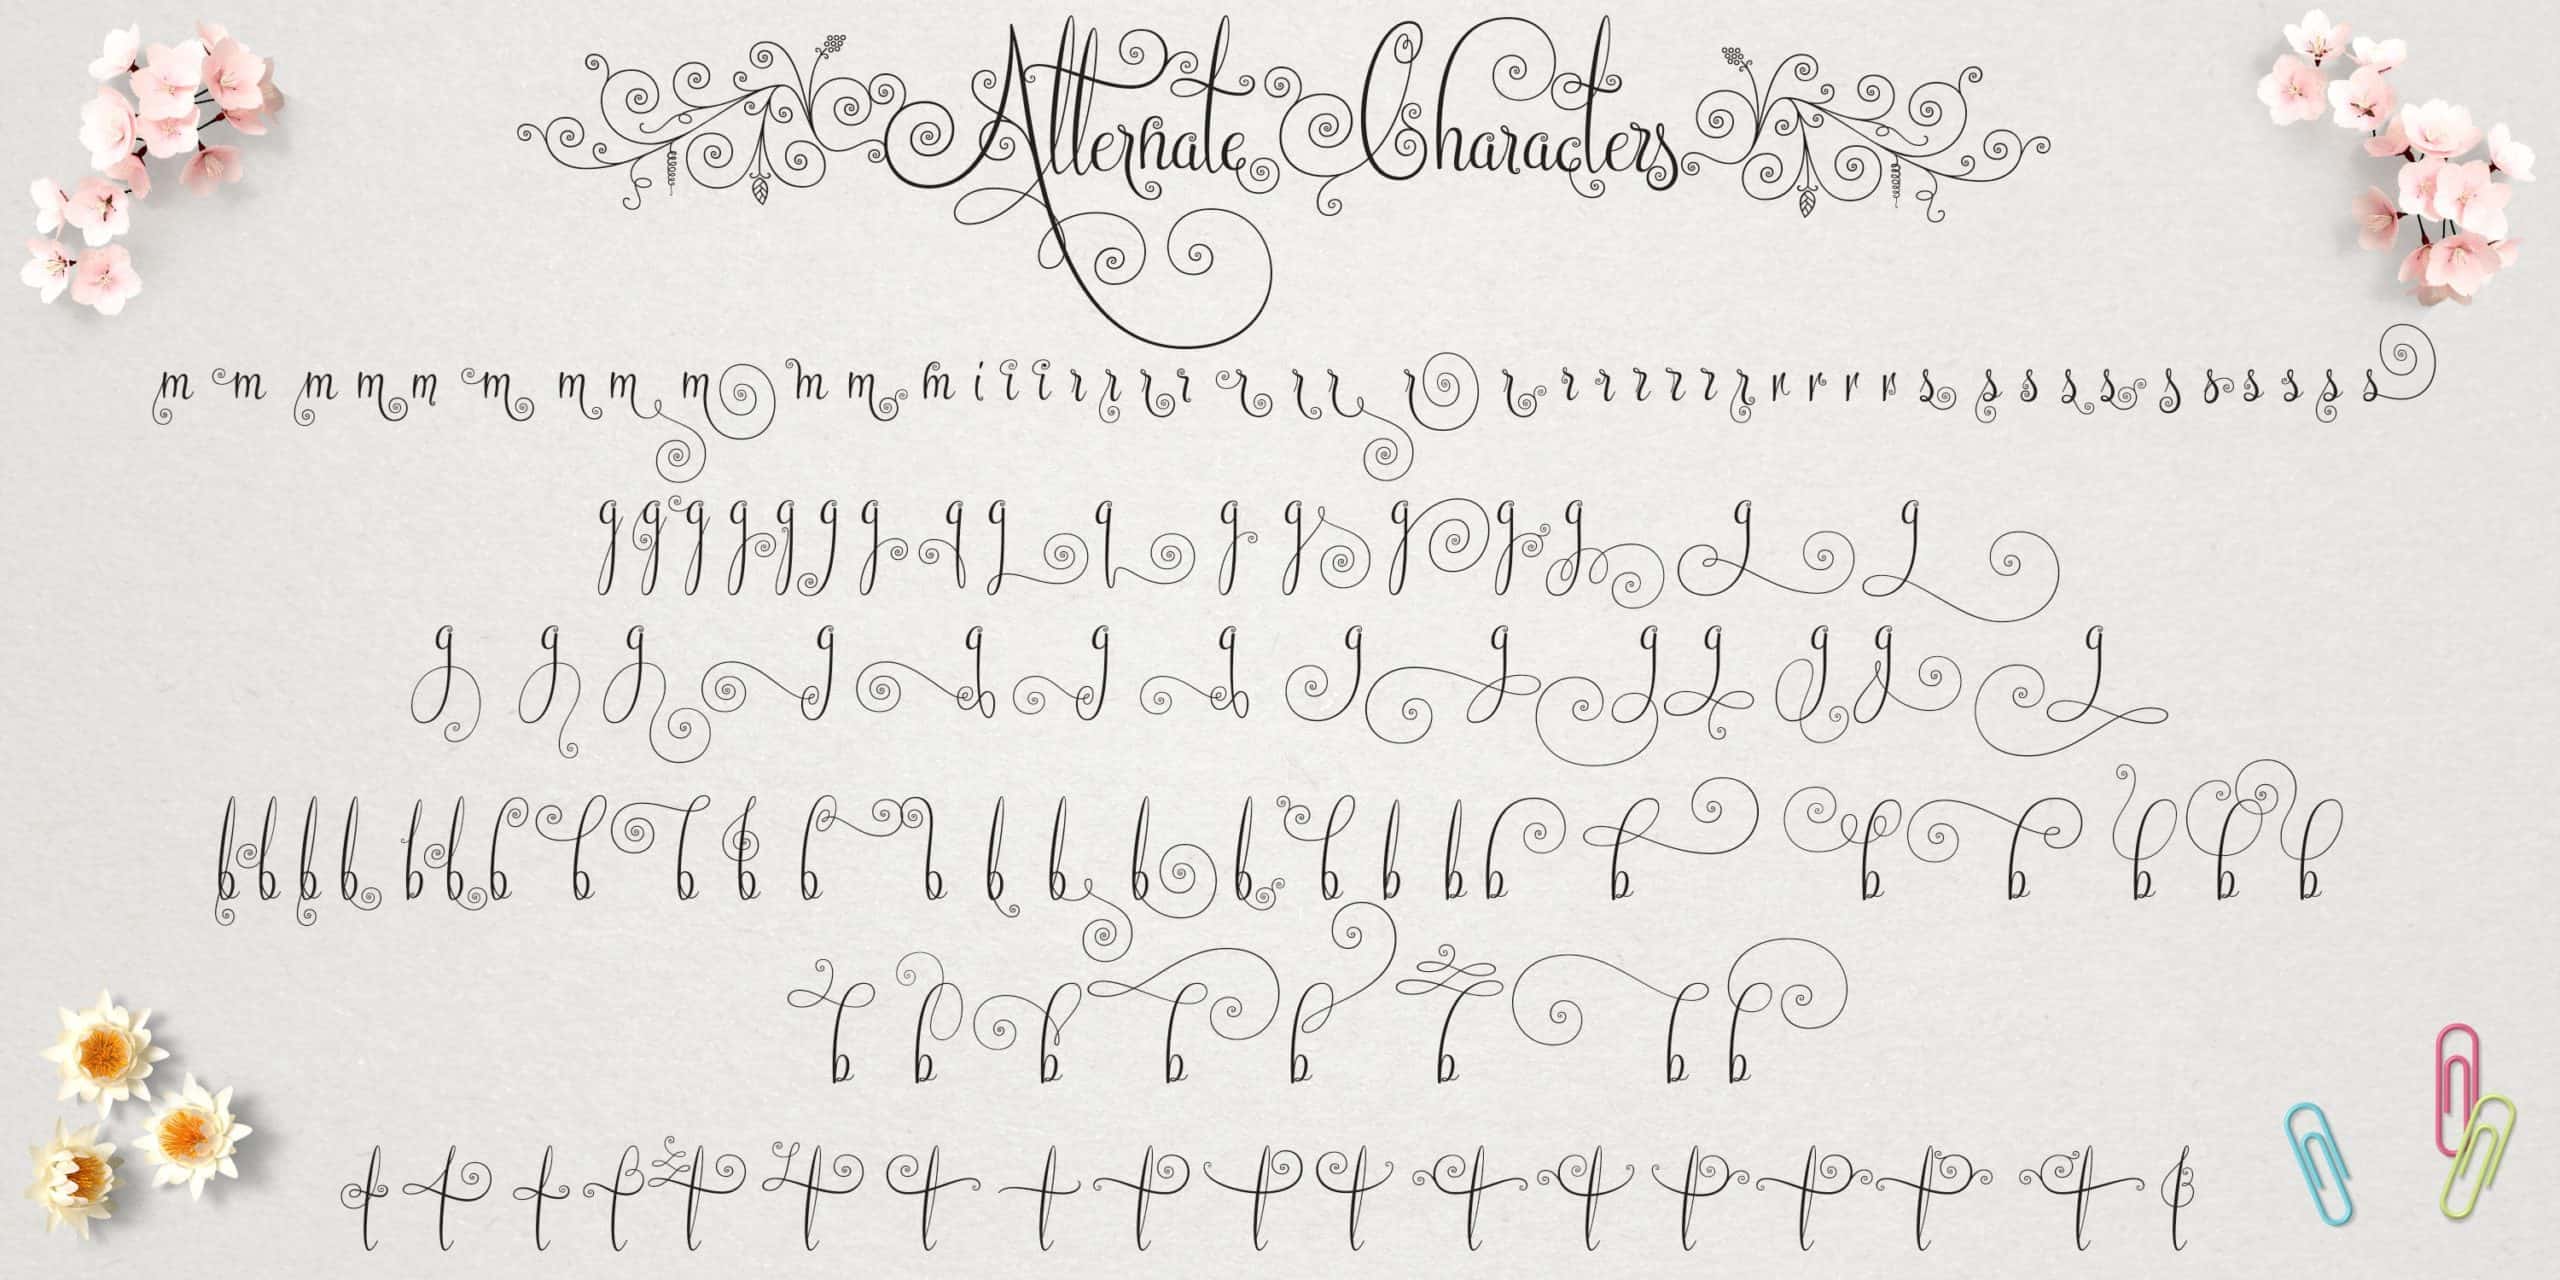 Alternate Characters
m m m m m m m m m m m m i i i r r r r r r r r r r r r r r r r r r r s s s s s s s s s s s
g g g g g g g g g g g g g g g g g
g g g g g g g g g g g g g g
b b b b b b b b b b b b b b b b b b b b b b b b b b
b b b b b b b b
t t t t t t t t t t t t t t t t t t